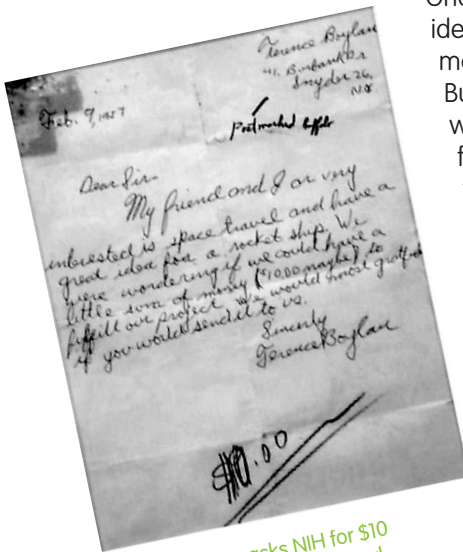 Terence Boylan
41 Burbank Dr
Snyder 26,
N.Y.
Feb. 9, 1957
Postmarked Buffalo
Dear Sir
My friend and I ar very
interested is space travel and have a
great idea for a rocket ship. We
were wondering if we could have a
little sum of money ($10.00 maybe) to
fulfill our project. We would most
if you would send it to us.
Sincerly
Terence Boylan
$10.00
asks NIH for $10